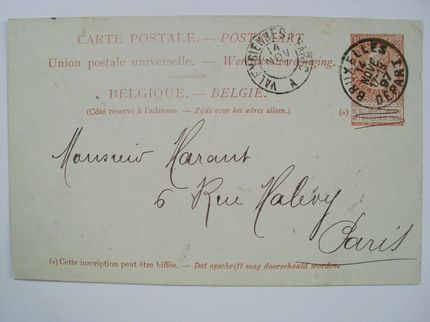 CARTE POSTALE. — POSTKAART
Union postale universelle. —
BELGIQUE. — BELGIE.
(Côté réservé à l'adresse. — Zijde voor het adres allem.)
VALENCIENNES
14
NOV
BRUXELLES
NOV
97
DEPART
(*)
Monsieur Harant
6 Rue Halévy
Paris
(*) Cette inscription peut être biffée. — Dat opschrift mag doorgehaald worden.